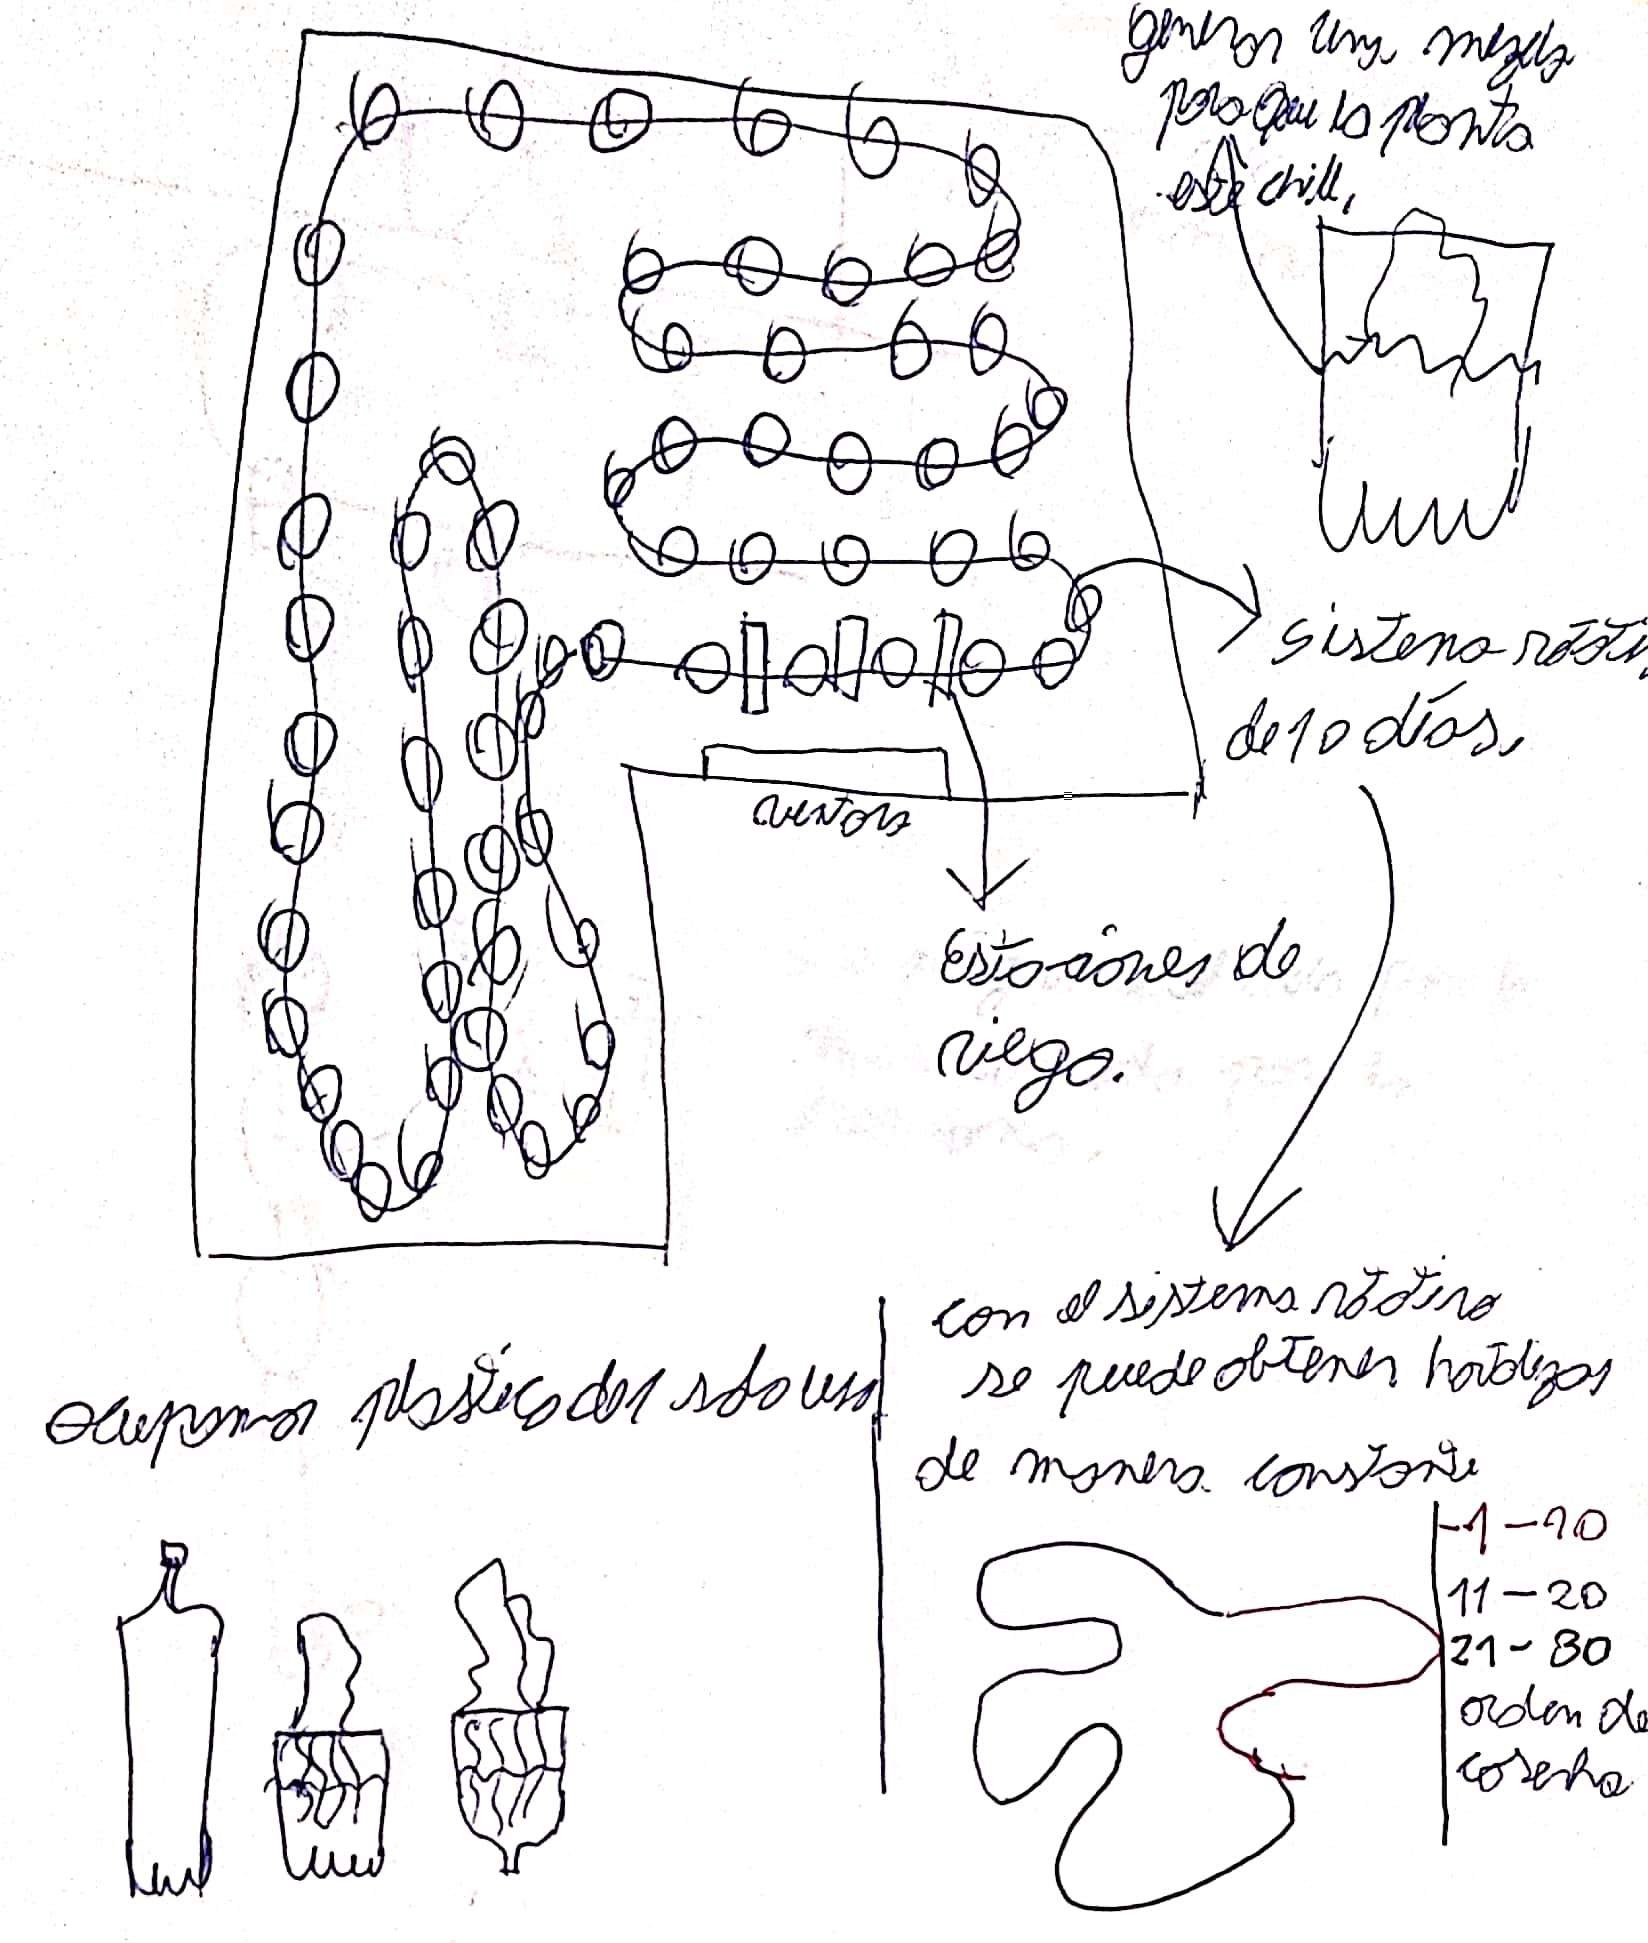 generar una mezcla
para que la planta
esté chill,
sistema
de 10 días.
ventana
Estaciones de
riego.
ocupamos plástico de 1 solo uso
con el sistema
se puede obtener hortalizas
de manera constante
-1-10
11-20
21-30
orden de
cosecha